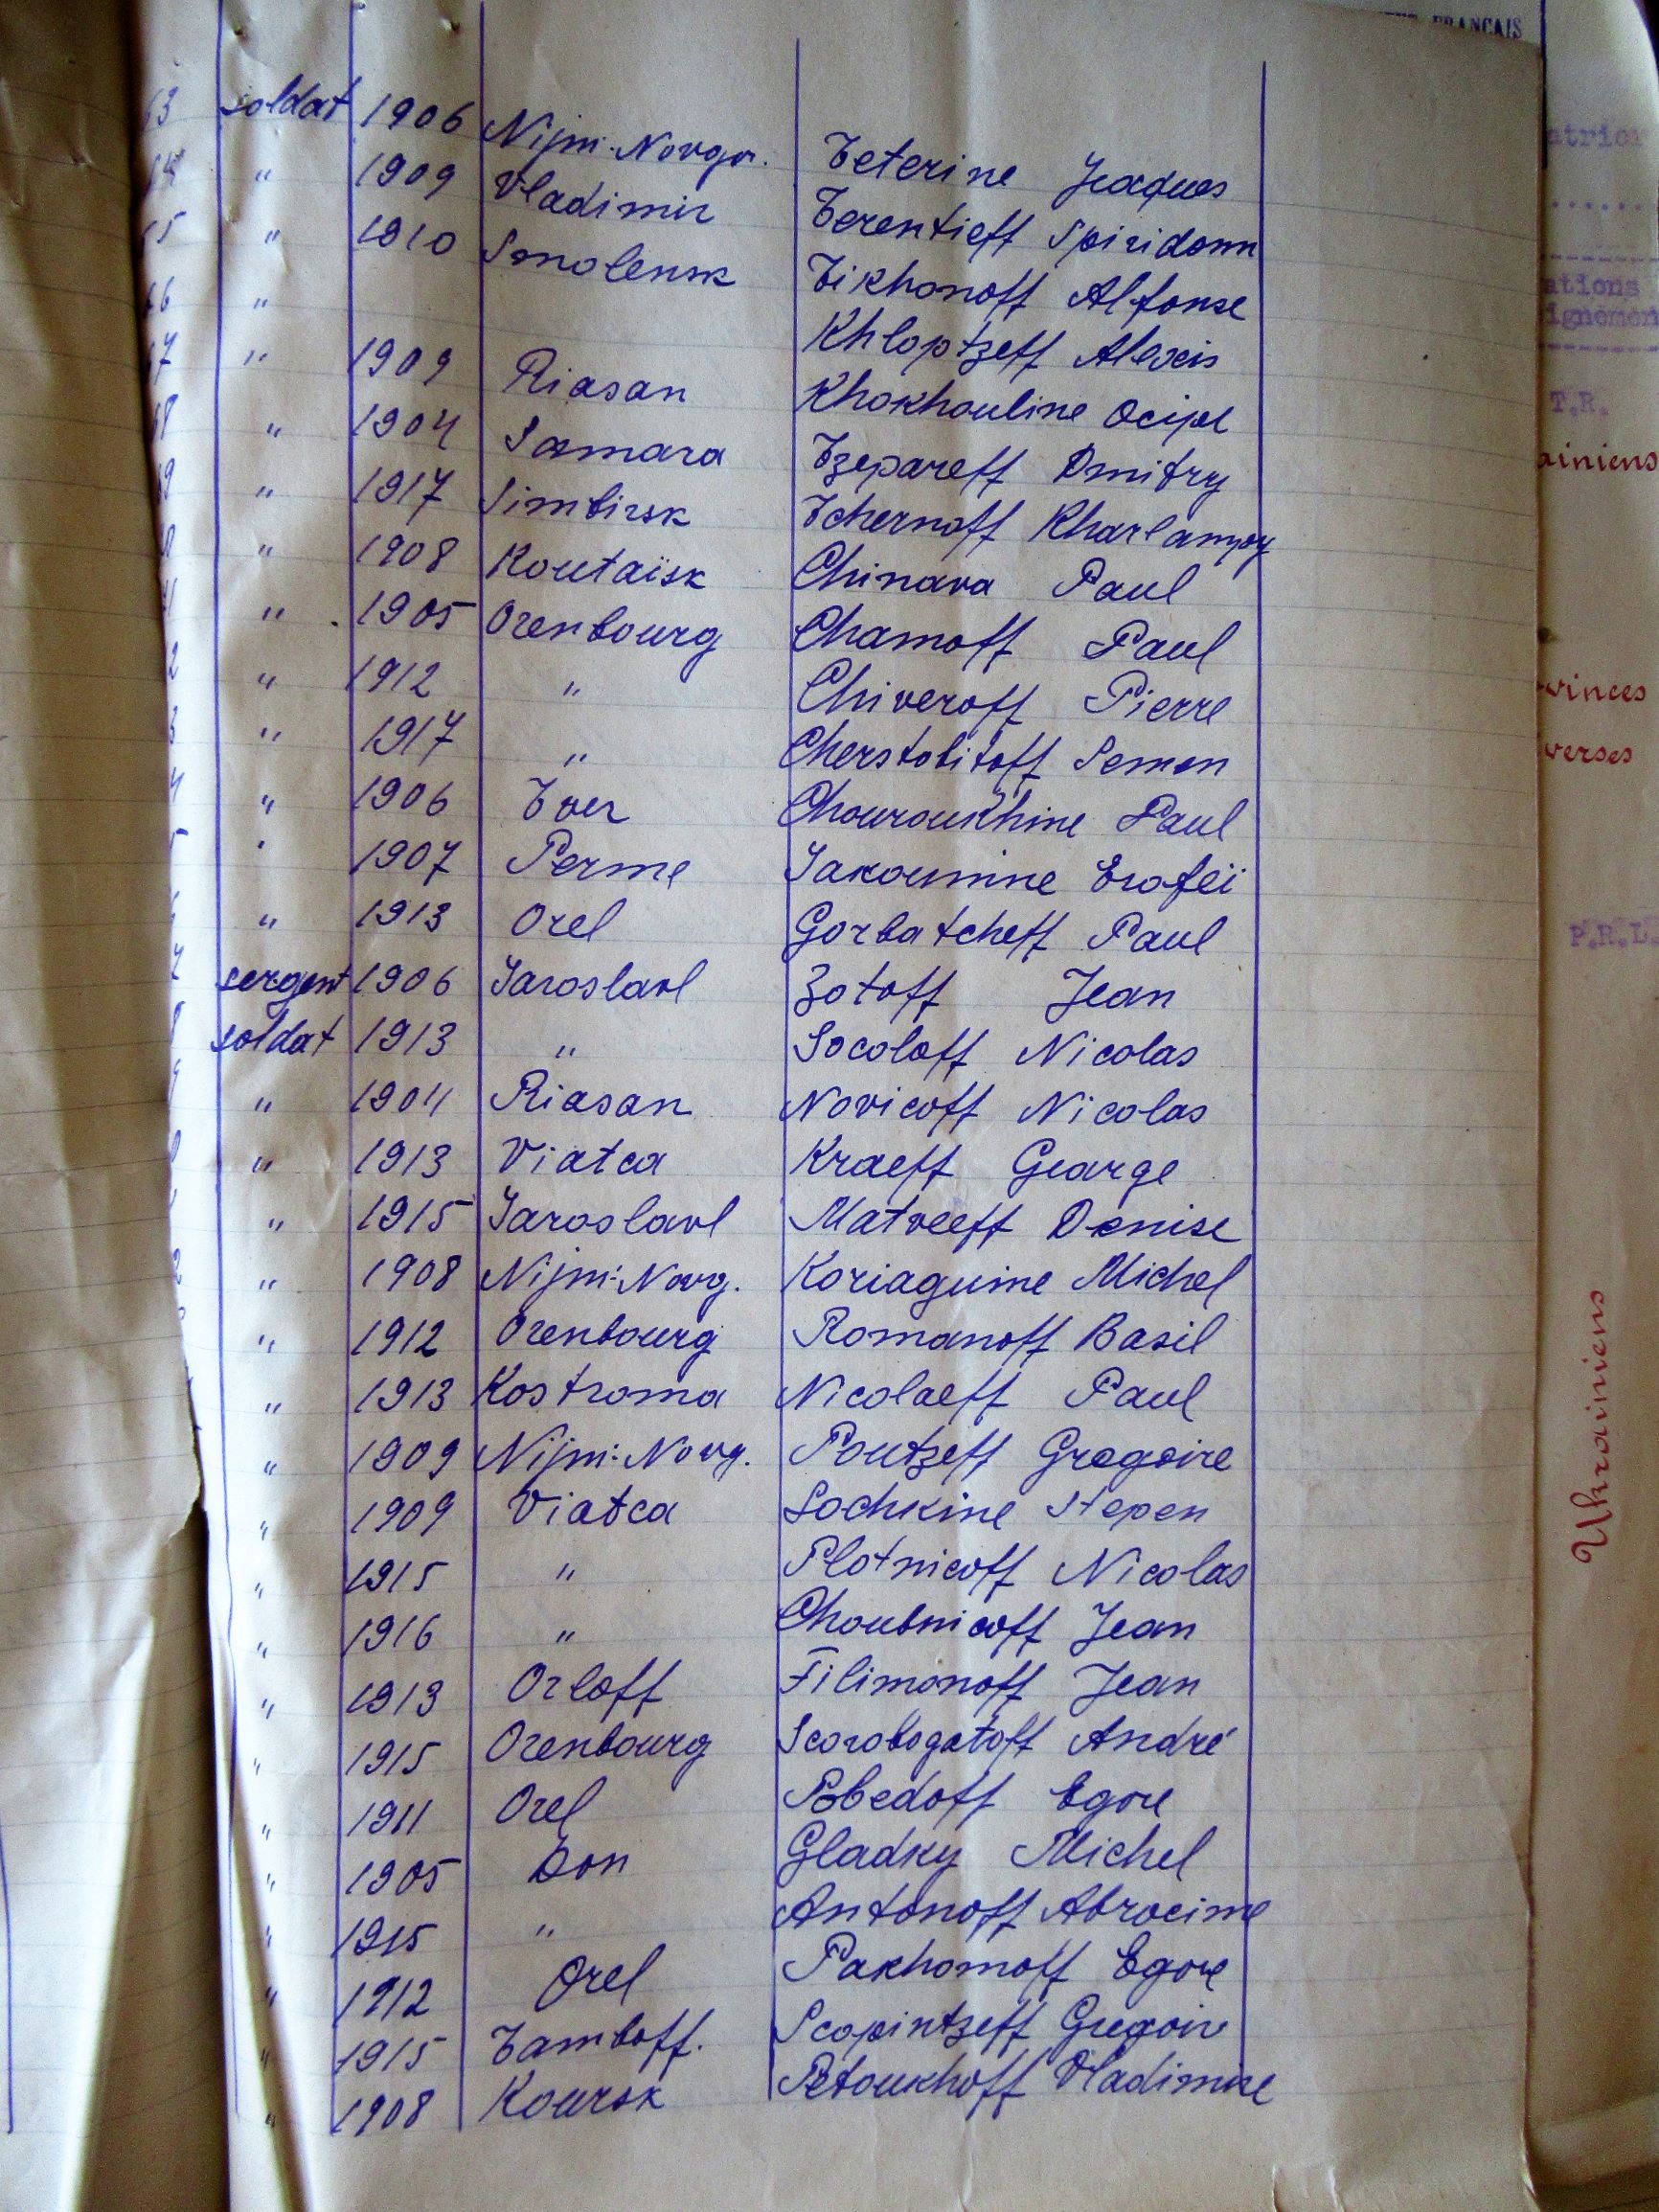 FRANÇAIS
63 soldat 1906 Nijni-Novgor. Teterine Jacques
64 " 1909 Vladimir Terentieff Spiridonn
65 " 1910 Smolensk Tikhonoff Alfonse
66 " Khloptzeff Alexis
67 " 1909 Riasan Khokhouline Ocipe
68 " 1904 Samara Tzepareff Dmitry
69 " 1917 Simbirsk Tchernoff Kharlampy
" 1908 Koutaïsk Chinava Paul
" 1905 Orenbourg Chamoff Paul
2 " 1912 " Chiveroff Pierre
3 " 1917 " Cherstobitoff Semen
4 " 1906 Tver Chouroukhine Paul
5 " 1907 Perme Iakounine Erofeï
" 1913 Orel Gorbatcheff Paul
7 sergent 1906 Iaroslavl Zotoff Jean
8 soldat 1913 " Socoloff Nicolas
9 " 1904 Riasan Novicoff Nicolas
0 " 1913 Viatca Kraeff George
" 1915 Iaroslavl Matveeff Denise
2 " 1908 Nijni-Novg. Koriaguine Michel
" 1912 Orenbourg Romanoff Basil
" 1913 Kostroma Nicolaeff Paul
" 1909 Nijni-Novg. Poutzeff Gregoire
" 1909 Viatca Sochkine Stepen
" 1915 " Plotnicoff Nicolas
" 1916 " Choubnicoff Jean
" 1913 Orloff Filimonoff Jean
" 1915 Orenbourg Scorobogatoff André
" 1911 Orel Pobedoff Egore
" 1905 Don Gladky Michel
" 1915 " Antonoff Abrocime
" 1912 Orel Pakhomoff Egore
" 1915 Tamboff. Scopintzeff Gregoir
" 1908 Koursk Petoukhoff Vladimire
atrier
ations
ignemen
T.R.
ainiens
vinces
verses
P.R.L.
Ukrainiens